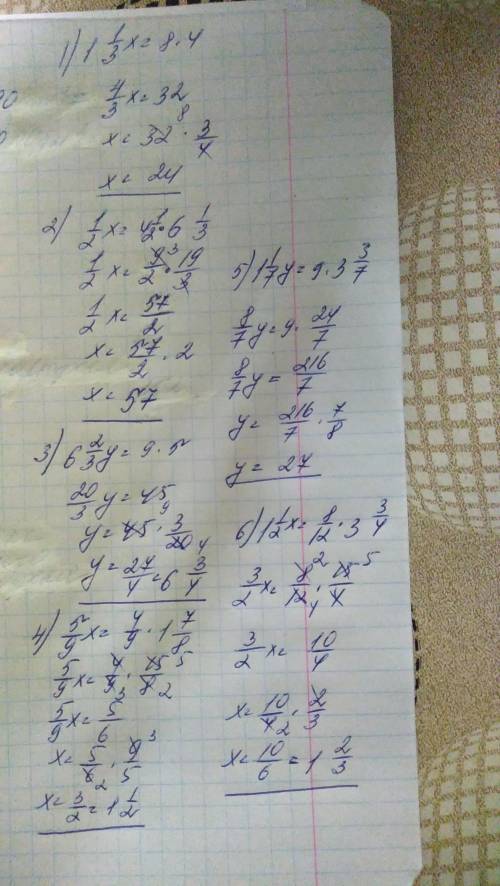 1) 1 1/3 x = 8 · 4
4/3 x = 32
x = 32 8 · 3/4
x = 24
2) 1/2 x = 4 1/2 · 6 1/3
1/2 x = 9 3/2 · 19/3
1/2 x = 57/2
x = 57/2 · 2
x = 57
3) 6 2/3 y = 9 · 5
20/3 y = 45
y = 45 9 · 3/20 4
y = 27/4 = 6 3/4
4) 5/9 x = 4/9 · 1 7/8
5/9 x = 4/9 3 · 15 5/8 2
5/9 x = 5/6
x = 5/6 2 · 9 3/5
x = 3/2 = 1 1/2
5) 1 1/7 y = 9 · 3 3/7
8/7 y = 9 · 24/7
8/7 y = 216/7
y = 216/7 · 7/8
y = 27
6) 1 1/2 x = 8/12 · 3 3/4
3/2 x = 8 2/12 4 · 15 5/4
3/2 x = 10/4
x = 10/4 2 · 2/3
x = 10/6 = 1 2/3